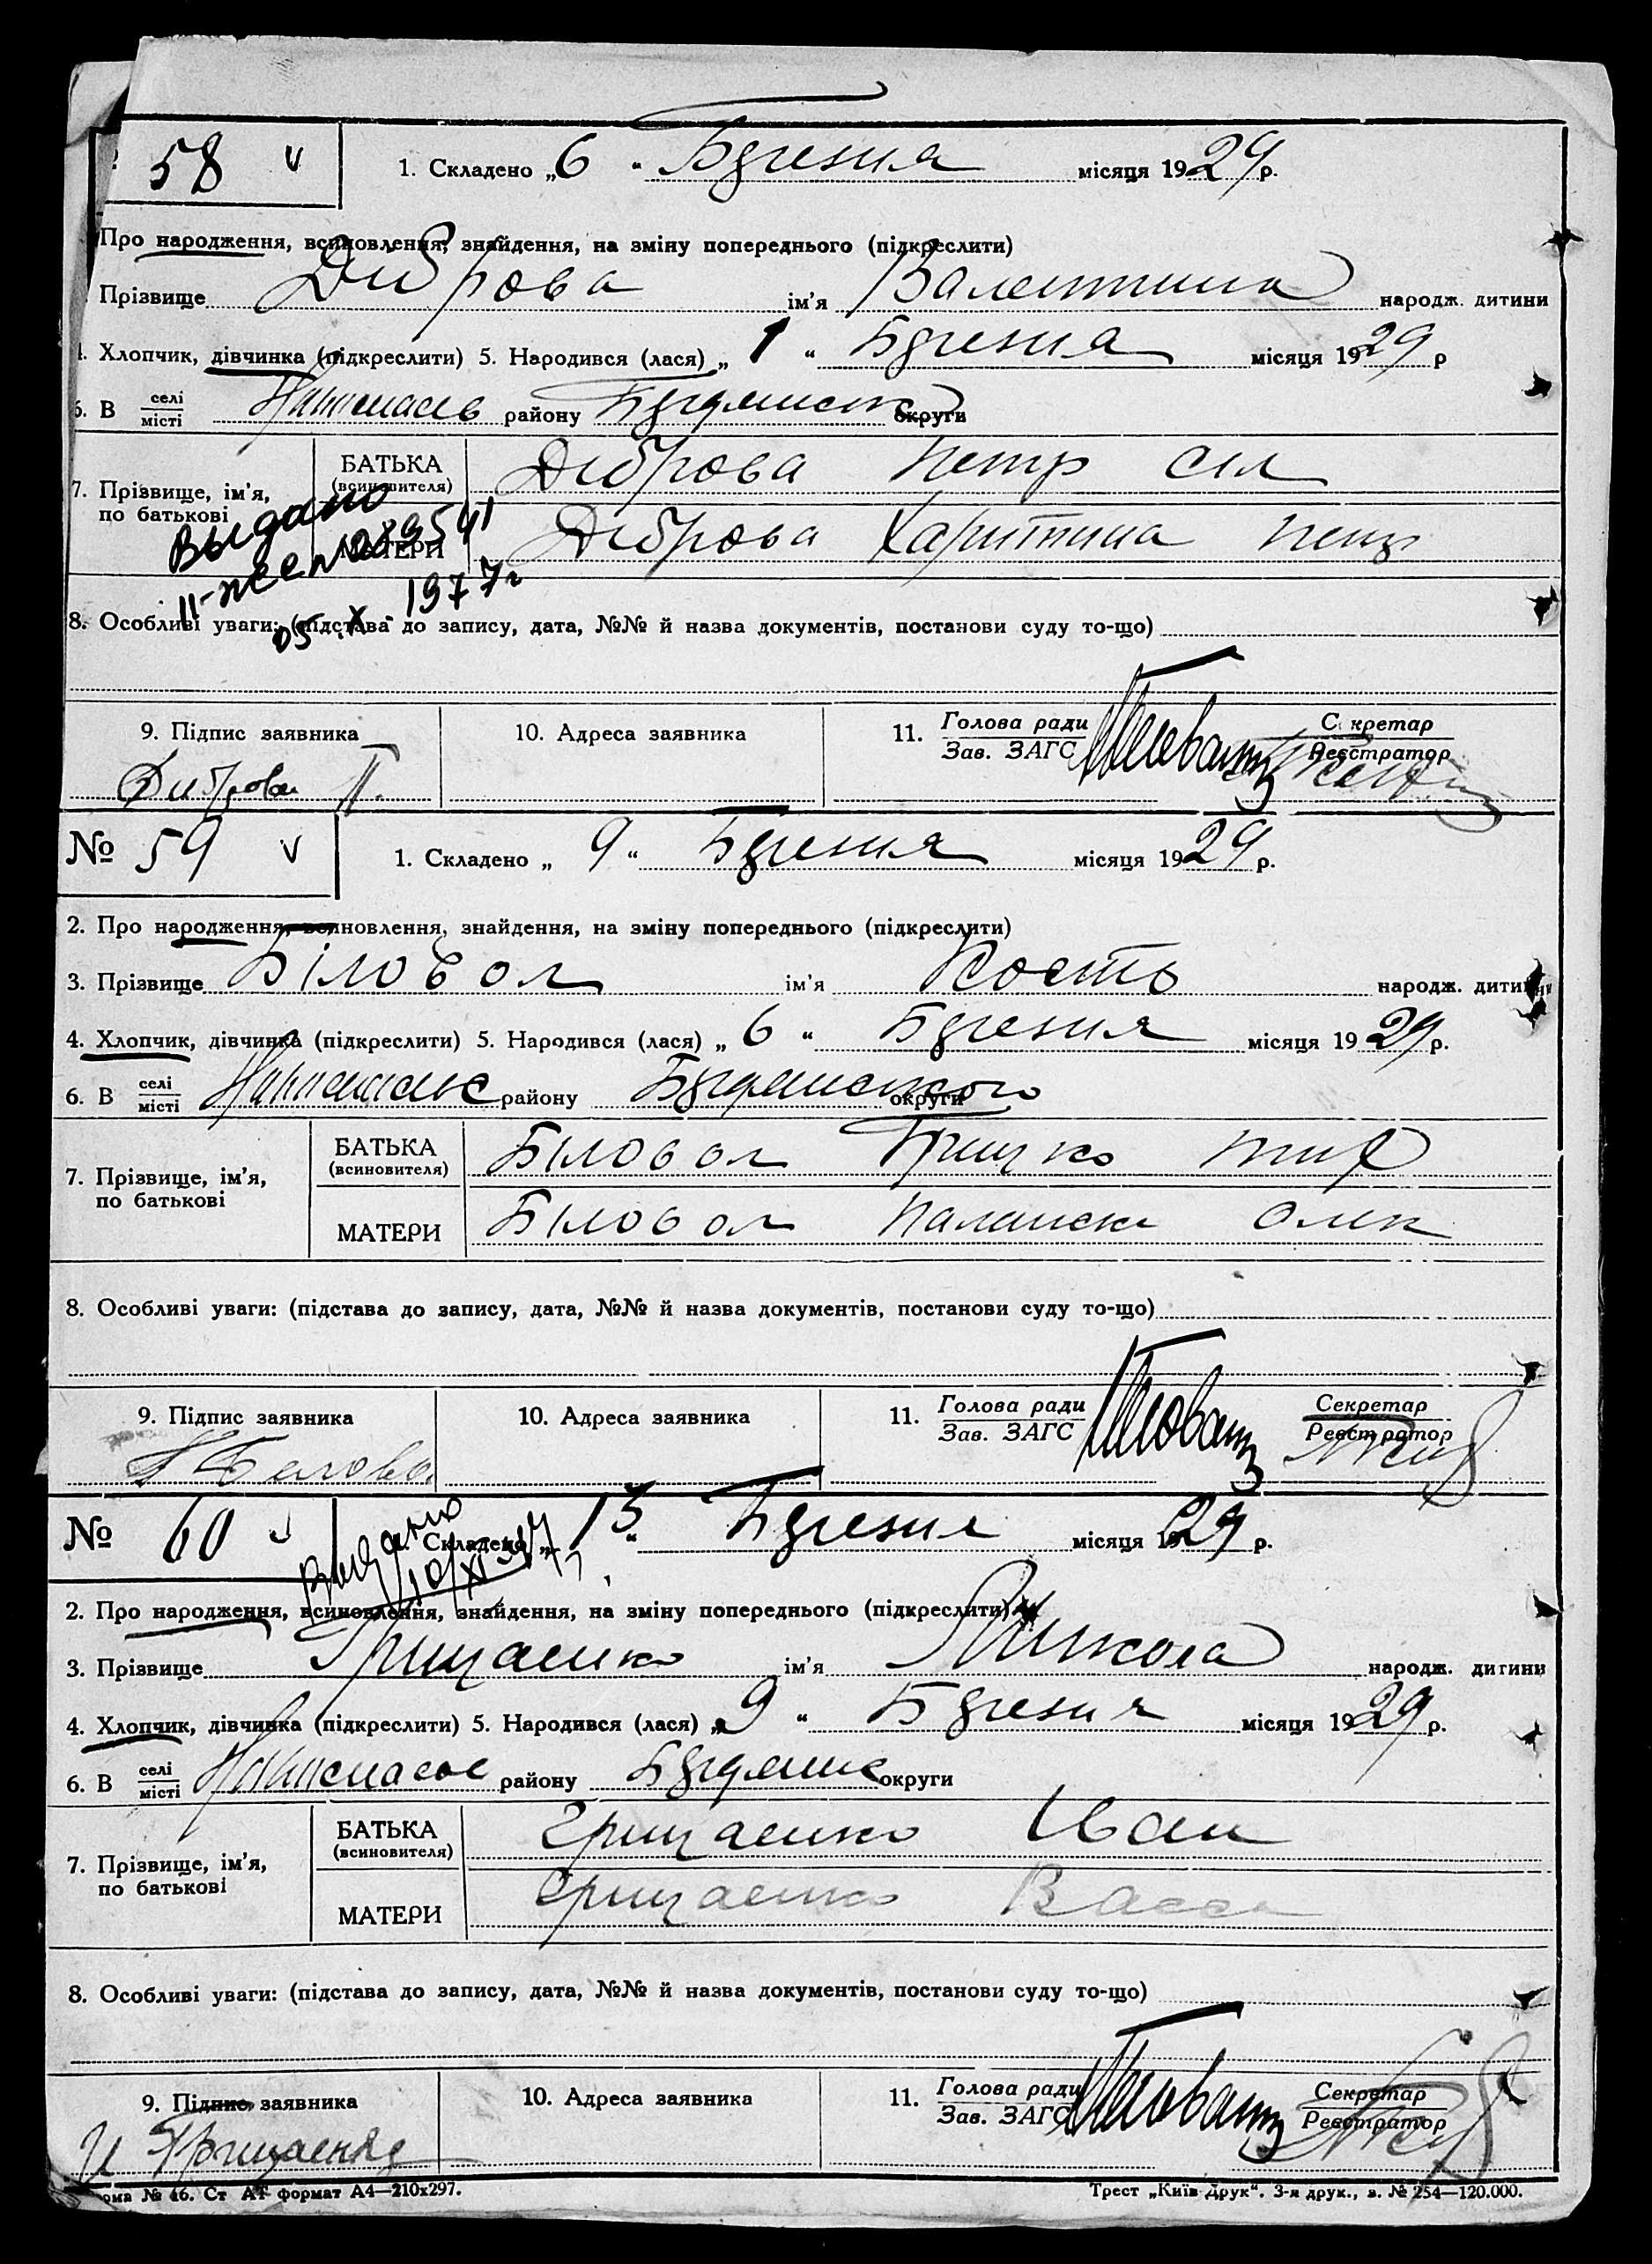 58 v 1. Складено „6“ Березня місяця 1929 р.
Про народження, всиновлення, знайдення, на зміну попереднього (підкреслити)
Прізвище Діброва ім'я Валентина народж. дитини
Хлопчик, дівчинка (підкреслити) 5. Народився (лася) „1“ Березня місяця 1929 р
6. В селі місті району округи
7. Прізвище, ім'я, по батькові
БАТЬКА (всиновителя) Діброва Петр Сил
МАТЕРИ Діброва Харитина
Выдано
1977 г
05.X.
8. Особливі уваги: (підстава до запису, дата, №№ й назва документів, постанови суду то-що)
9. Підпис заявника 10. Адреса заявника 11. Голова ради Зав. ЗАГС Секретар Реєстратор
Диброва П.
№ 59 v 1. Складено „9“ Березня місяця 1929 р.
2. Про народження, всиновлення, знайдення, на зміну попереднього (підкреслити)
3. Прізвище Біловол ім'я Кость народж. дитини
4. Хлопчик, дівчинка (підкреслити) 5. Народився (лася) „6“ Березня місяця 1929 р.
6. В селі місті району округи
7. Прізвище, ім'я, по батькові
БАТЬКА (всиновителя) Біловол Грицко
МАТЕРИ Біловол Олек
8. Особливі уваги: (підстава до запису, дата, №№ й назва документів, постанови суду то-що)
9. Підпис заявника 10. Адреса заявника 11. Голова ради Зав. ЗАГС Секретар Реєстратор
№ 60 v 1. Складено „13“ Березня місяця 1929 р.
Выдано
2. Про народження, всиновлення, знайдення, на зміну попереднього (підкреслити)
3. Прізвище Грицаенко ім'я Микола народж. дитини
4. Хлопчик, дівчинка (підкреслити) 5. Народився (лася) „9“ Березня місяця 1929 р.
6. В селі місті району округи
7. Прізвище, ім'я, по батькові
БАТЬКА (всиновителя) Грицаенко Іван
МАТЕРИ Грицаенко Васса
8. Особливі уваги: (підстава до запису, дата, №№ й назва документів, постанови суду то-що)
9. Підпис заявника 10. Адреса заявника 11. Голова ради Зав. ЗАГС Секретар Реєстратор
И Грицаенко
№ 46. Ст АТ формат А4—210х297. Трест „Київ-Друк“. 3-я друк., з. № 254—120.000.